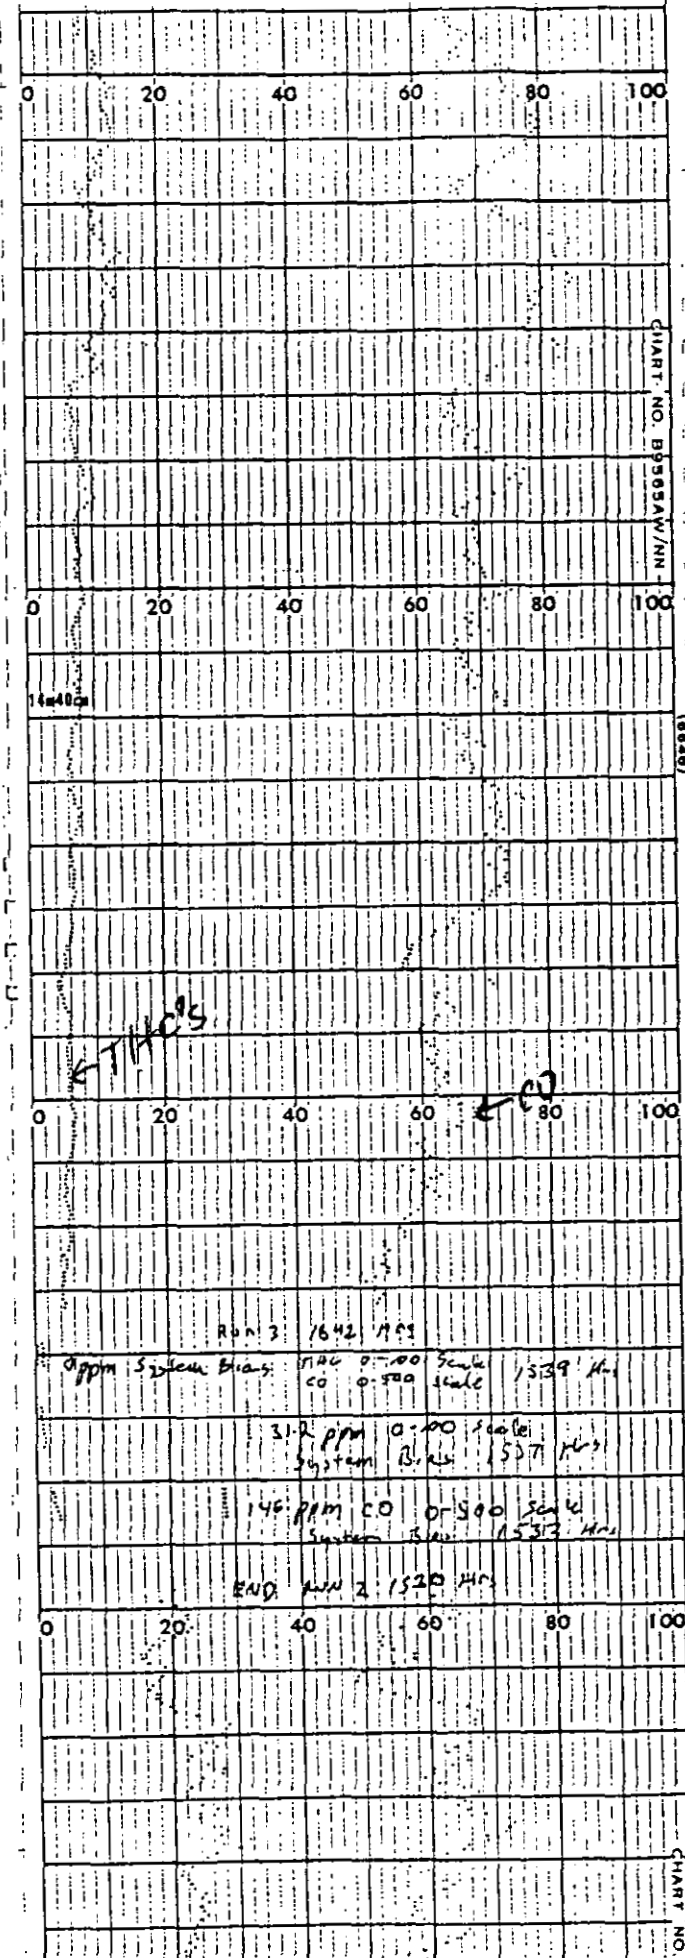 0 20 40 60 80 100
CHART NO. B9565AW/NN
0 20 40 60 80 100
14m40cm
THC's
CO
0 20 40 60 80 100
Run 3 1642 Hrs
0ppm System Bias THC 0-100 Scale 1539 Hrs
CO 0-500 Scale
31.2 ppm 0-100 Scale
System Bias 1537 Hrs
146 ppm CO 0-500 Scale
System Bias Hrs
END RUN 2 1520 Hrs
0 20 40 60 80 100
CHART NO